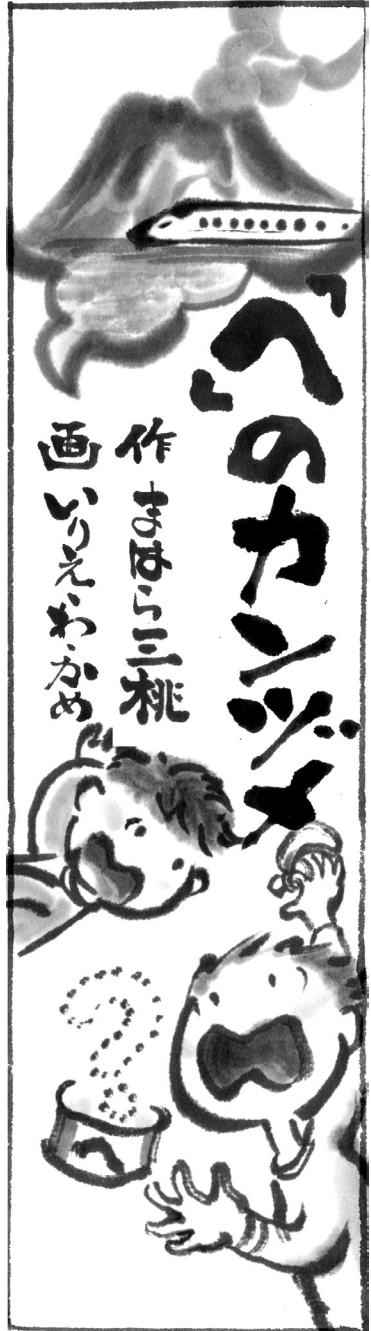 「へ」のカンヅメ
作 まはら三桃
画 いりえ・わ・かめ